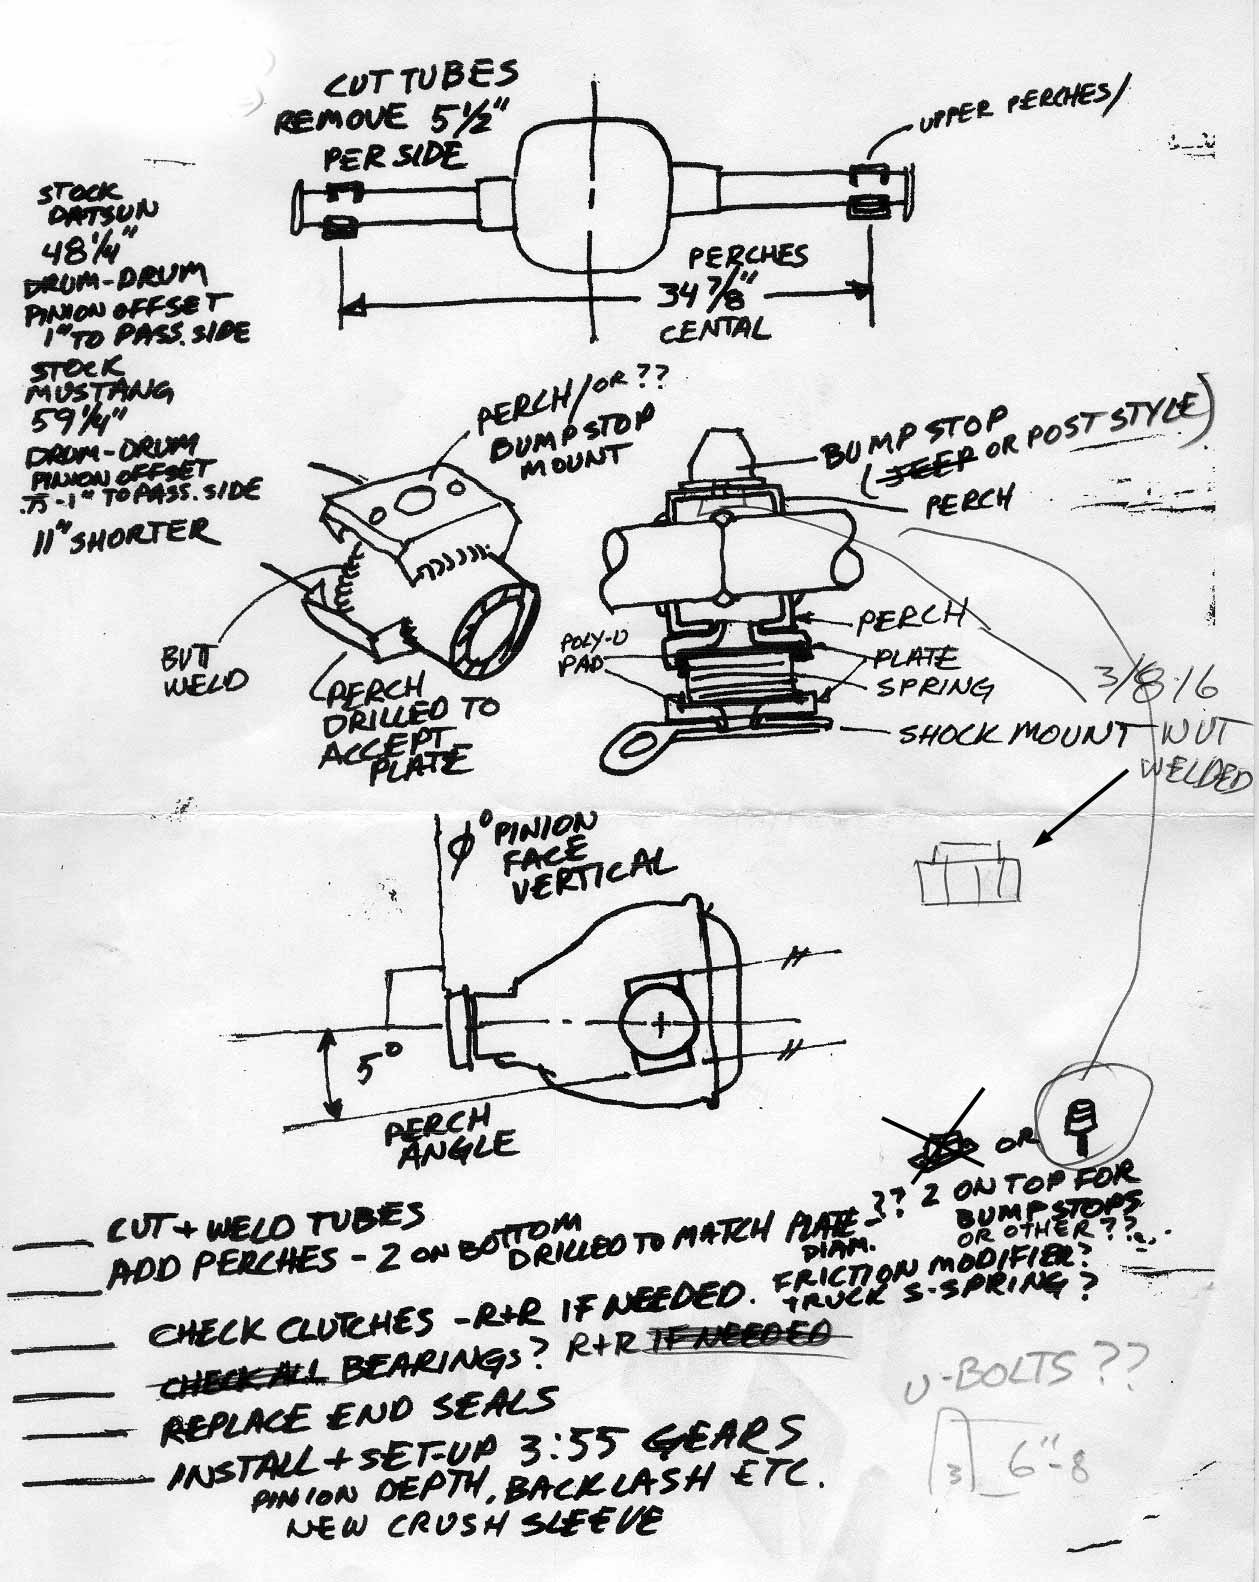 CUT TUBES
REMOVE 5 1/2"
PER SIDE
UPPER PERCHES/
STOCK
DATSUN
48 1/4"
DRUM-DRUM
PINION OFFSET
1" TO PASS. SIDE
STOCK
MUSTANG
59 1/4"
DRUM-DRUM
PINION OFFSET
.75-1" TO PASS. SIDE
11" SHORTER
PERCHES
34 7/8"
CENTAL
PERCH/OR ??
BUMPSTOP
MOUNT
BUMP STOP
(JEEP OR POST STYLE)
PERCH
BUTT
WELD
PERCH
DRILLED TO
ACCEPT
PLATE
POLY-U
PAD
PERCH
PLATE
SPRING
SHOCK MOUNT
3/8-16
NUT
WELDED
φ° PINION
FACE
VERTICAL
5°
PERCH
ANGLE
OR
CUT + WELD TUBES
ADD PERCHES - 2 ON BOTTOM
DRILLED TO MATCH PLATE - ??
DIAM.
2 ON TOP FOR
BUMPSTOPS
OR OTHER??
CHECK CLUTCHES - R+R IF NEEDED.
FRICTION MODIFIER?
TRUCK S-SPRING?
CHECK ALL BEARINGS? R+R IF NEEDED
REPLACE END SEALS
INSTALL + SET-UP 3:55 GEARS
PINION DEPTH, BACKLASH ETC.
NEW CRUSH SLEEVE
U-BOLTS ??
3 6"-8